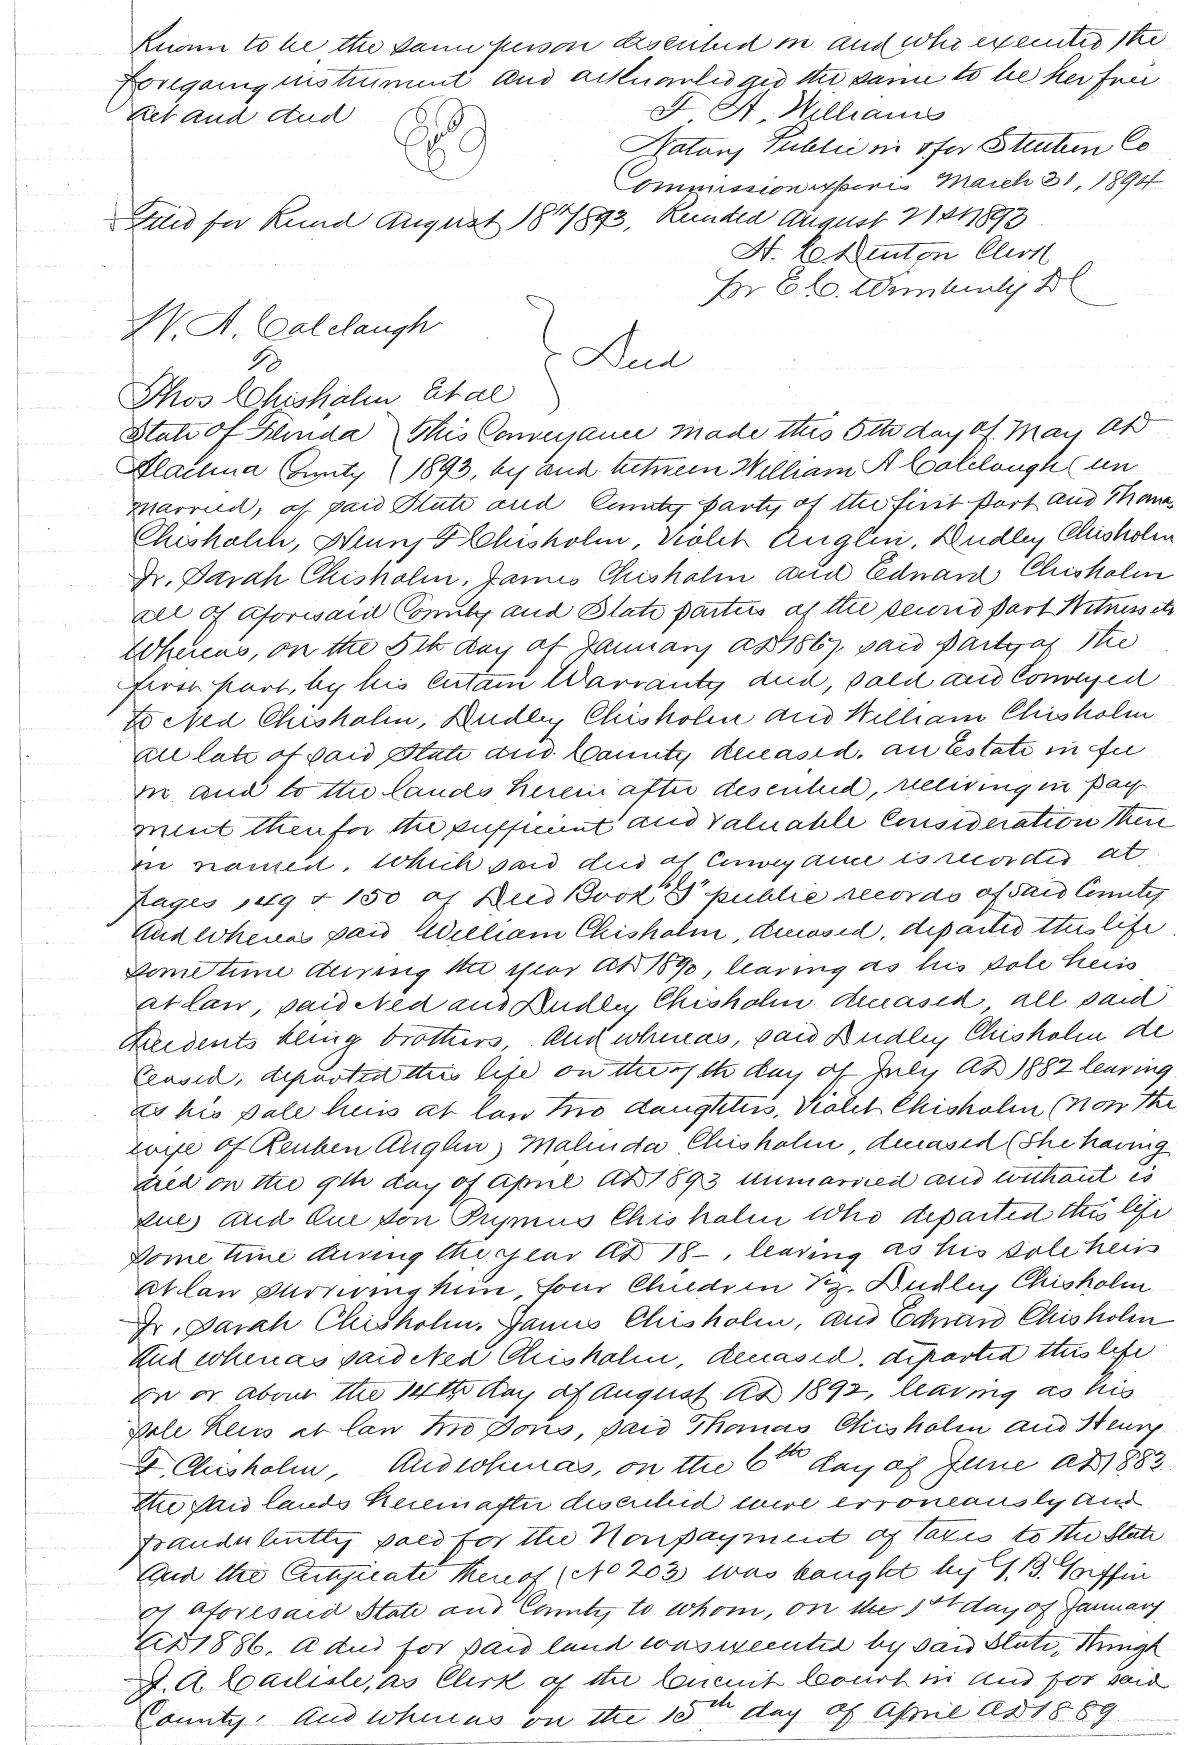 Known to be the same person described in and who executed the
foregoing instrument and acknowledged the same to be her free
act and deed
F. A. Williams
Notary Public in & for Steuben Co
Commission expires March 31, 1894
Filed for Record August 18th 1893, Recorded August 21st 1893
H. C. Denton Clerk
for E. C. Wimberly DC
W. A. Colclough
To
Thos Chisholm Et al
Deed
State of Florida } This Conveyance made this 5th day of May AD
Alachua County } 1893, by and between William A Colclough (un
married, of said State and County party of the first part and Thomas
Chisholm, Henry F Chisholm, Violet Anglin, Dudley Chisholm
Jr, Sarah Chisholm, James Chisholm and Edward Chisholm
all of aforesaid County and State parties of the second part Witnesseth
Whereas, on the 5th day of January AD 1867, said party of the
first part, by his certain Warranty deed, sold and conveyed
to Ned Chisholm, Dudley Chisholm and William Chisholm
all late of said State and County deceased, an Estate in fee
in and to the lands herein after described, receiving in pay
ment therefor the sufficient and valuable consideration there
in named, which said deed of conveyance is recorded at
pages 149 & 150 of Deed Book public records of said County
And whereas said William Chisholm, deceased, departed this life
sometime during the year AD 1890, leaving as his sole heirs
at law, said Ned and Dudley Chisholm deceased, all said
decedents being brothers, And whereas, said Dudley Chisholm de
ceased, departed this life on the 7th day of July AD 1882 leaving
as his sole heirs at law two daughters, Violet Chisholm (now the
wife of Reuben Anglin) Malinda Chisholm, deceased (she having
died on the 9th day of April AD 1893 unmarried and without is
sue) and One son Prymus Chisholm who departed this life
some time during the year AD 18–, leaving as his sole heirs
at law surviving him, four children Viz. Dudley Chisholm
Jr, Sarah Chisholm, James Chisholm, and Edward Chisholm
And whereas said Ned Chisholm, deceased, departed this life
on or about the 14th day of August AD 1892, leaving as his
sole heirs at law two sons, said Thomas Chisholm and Henry
F. Chisholm, And whereas, on the 6th day of June AD 1883
the said lands hereinafter described were erroneously and
fraudulently sold for the Nonpayment of taxes to the State
And the Certificate thereof (No 203) was bought by G. B. Griffin
of aforesaid State and County to whom, on the 1st day of January
AD 1886, a deed for said land was executed by said State, through
J. A. Carlisle, as Clerk of the Circuit Court in and for said
County. And whereas on the 15th day of April AD 1889